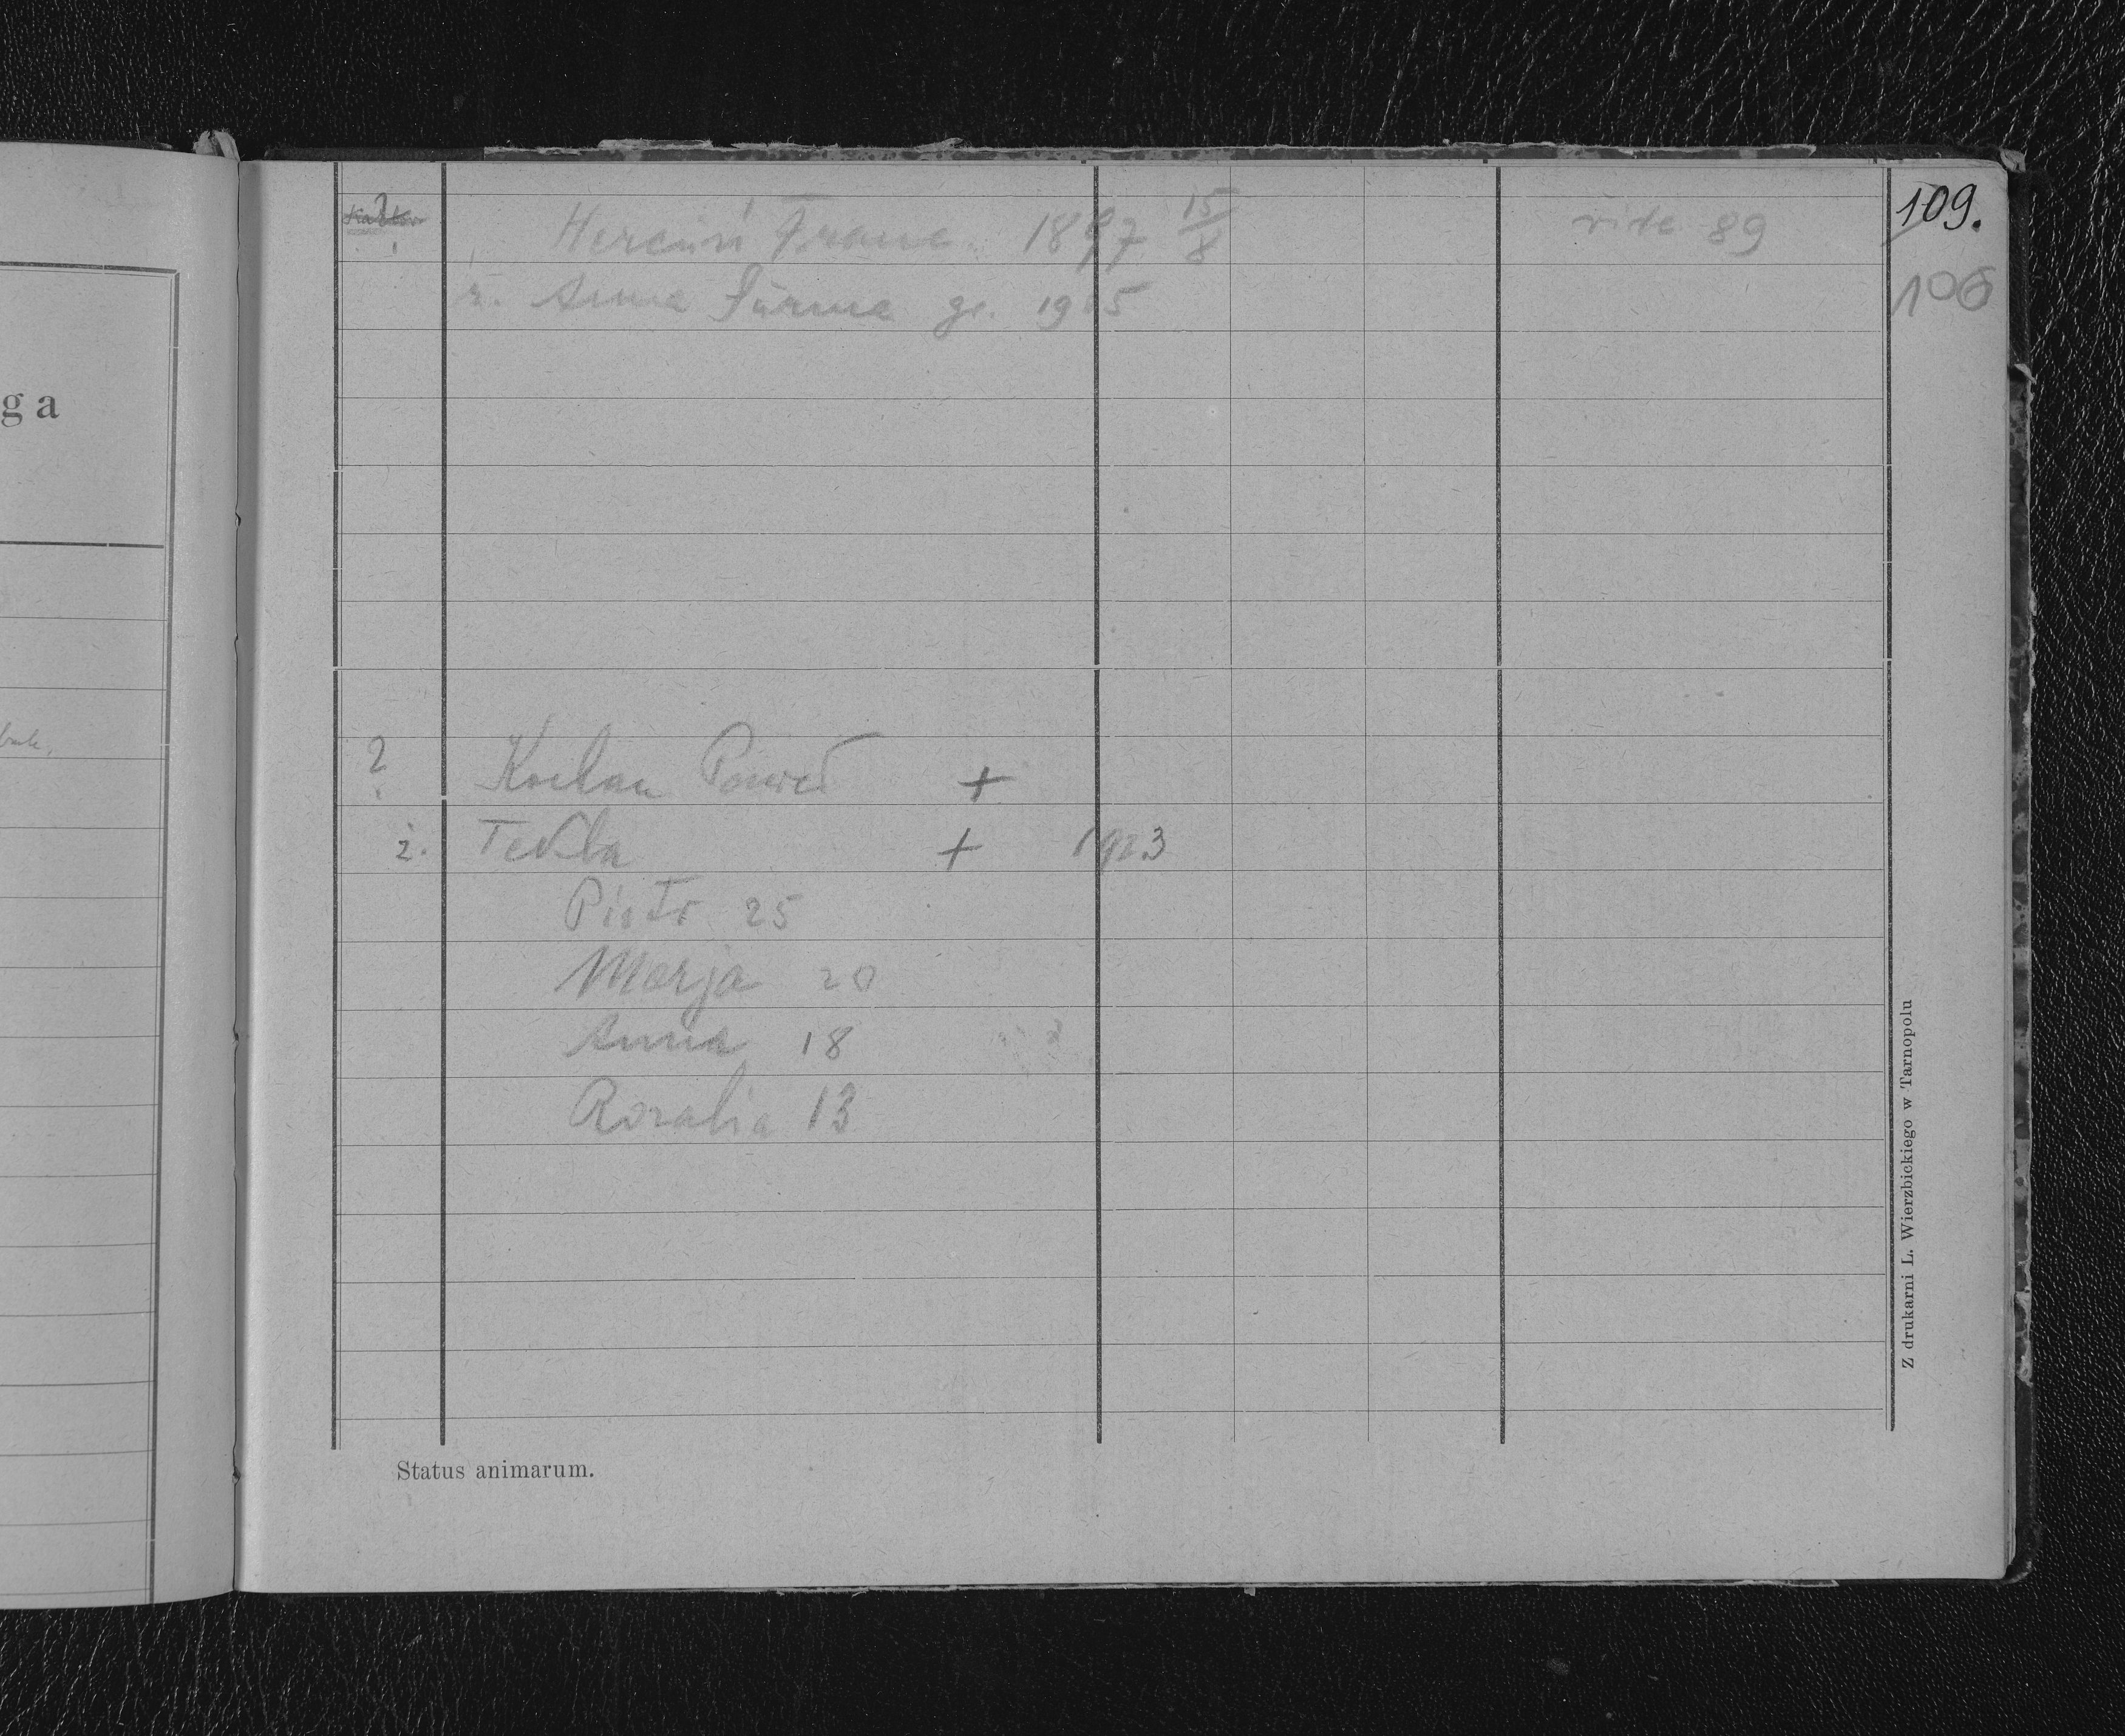 109.
? Hercuń Franc. 1897 15/8 vide 89
106
ż. Anna Surma gr. 1905
ga
? Kochan Paweł +
ż. Tekla + 1923
Piotr 25
Marja 20
Anna 18
Rozalia 13
Status animarum.
Z drukarni L. Wierzbickiego w Tarnopolu